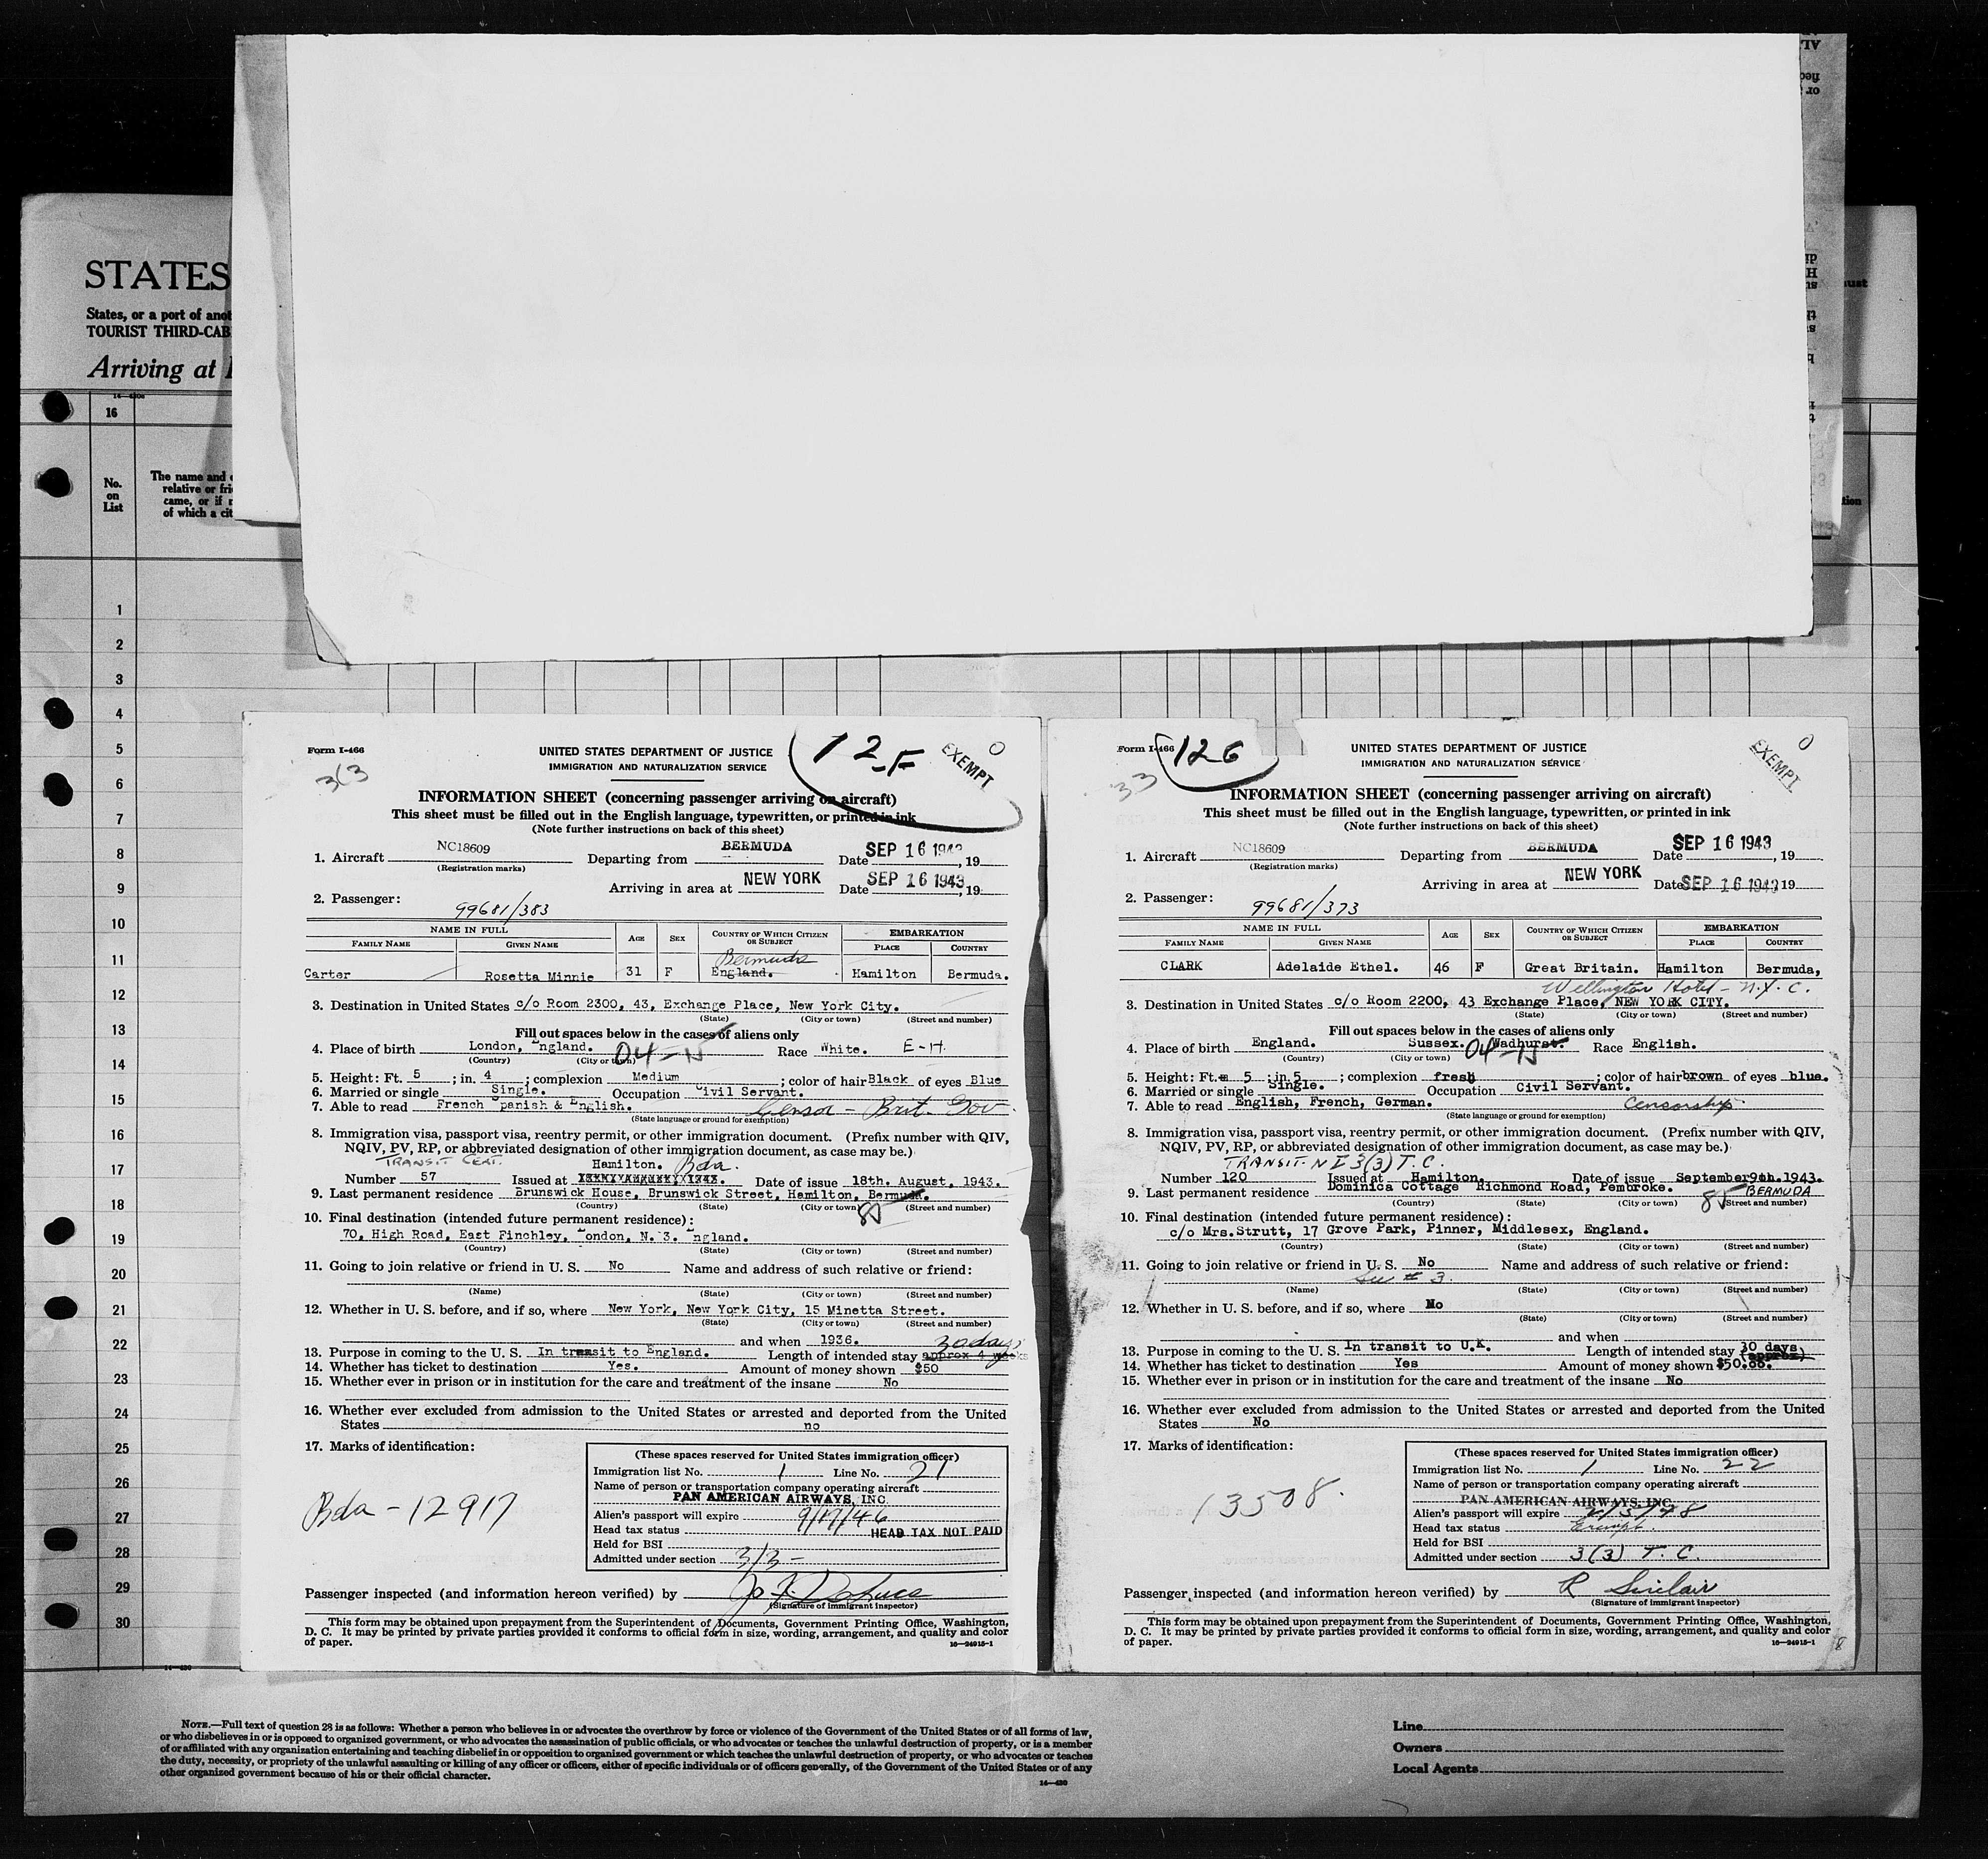 STATES
States, or a port of anot
TOURIST THIRD-CAB
Arriving at
16
No.
on
List
The name and
relative or fri
came, or if
of which a cit
1
2
3
4
5
6
7
8
9
10
11
12
13
14
15
16
17
18
19
20
21
22
23
24
25
26
27
28
29
30
Form I-466
UNITED STATES DEPARTMENT OF JUSTICE
IMMIGRATION AND NATURALIZATION SERVICE
12-F
EXEMPT
3(3
INFORMATION SHEET (concerning passenger arriving on aircraft)
This sheet must be filled out in the English language, typewritten, or printed in ink
(Note further instructions on back of this sheet)
1. Aircraft NC18609 Departing from BERMUDA Date SEP 16 1943, 19
(Registration marks)
Arriving in area at NEW YORK Date SEP 16 1943, 19
2. Passenger: 99681/383
NAME IN FULL AGE SEX COUNTRY OF WHICH CITIZEN OR SUBJECT EMBARKATION
FAMILY NAME GIVEN NAME PLACE COUNTRY
Bermuda
Carter Rosetta Minnie 31 F England. Hamilton Bermuda.
3. Destination in United States c/o Room 2300, 43, Exchange Place, New York City.
(State) (City or town) (Street and number)
Fill out spaces below in the cases of aliens only
4. Place of birth London, England. 04-15 Race White. E-H
(Country) (City or town)
5. Height: Ft. 5 ; in. 4 ; complexion Medium ; color of hair Black of eyes Blue
6. Married or single Single. Occupation Civil Servant.
7. Able to read French Spanish & English. Censor - Brit. Gov.
(State language or ground for exemption)
8. Immigration visa, passport visa, reentry permit, or other immigration document. (Prefix number with QIV,
NQIV, PV, RP, or abbreviated designation of other immigration document, as case may be.)
TRANSIT CERT. Hamilton. Bda.
Number 57 Issued at Date of issue 18th. August, 1943.
9. Last permanent residence Brunswick House, Brunswick Street, Hamilton, Bermuda.
(Country) (State) (City or town) 85 (Street and number)
10. Final destination (intended future permanent residence):
70, High Road, East Finchley, London, N. 3. England.
(Country) (State) (City or town) (Street and number)
11. Going to join relative or friend in U. S. No Name and address of such relative or friend:
(Name) (State) (City or town) (Street and number)
12. Whether in U. S. before, and if so, where New York, New York City, 15 Minetta Street.
(State) (City or town) (Street and number)
and when 1936. 30 days
13. Purpose in coming to the U. S. In transit to England. Length of intended stay approx 4 weeks
14. Whether has ticket to destination Yes. Amount of money shown $50
15. Whether ever in prison or in institution for the care and treatment of the insane No
16. Whether ever excluded from admission to the United States or arrested and deported from the United
States no
17. Marks of identification:
Bda - 12917
(These spaces reserved for United States immigration officer)
Immigration list No. 1 Line No. 21
Name of person or transportation company operating aircraft
PAN AMERICAN AIRWAYS, INC.
Alien's passport will expire 9/17/46
Head tax status HEAD TAX NOT PAID
Held for BSI
Admitted under section 3/3 -
Passenger inspected (and information hereon verified) by
(Signature of immigrant inspector)
This form may be obtained upon prepayment from the Superintendent of Documents, Government Printing Office, Washington,
D. C. It may be printed by private parties provided it conforms to official form in size, wording, arrangement, and quality and color
of paper. 16—24915-1
Form I-466
126
UNITED STATES DEPARTMENT OF JUSTICE
IMMIGRATION AND NATURALIZATION SERVICE
EXEMPT
33
INFORMATION SHEET (concerning passenger arriving on aircraft)
This sheet must be filled out in the English language, typewritten, or printed in ink
(Note further instructions on back of this sheet)
1. Aircraft NC18609 Departing from BERMUDA Date SEP 16 1943, 19
(Registration marks)
Arriving in area at NEW YORK Date SEP 16 1943 19
2. Passenger: 99681/373
NAME IN FULL AGE SEX COUNTRY OF WHICH CITIZEN OR SUBJECT EMBARKATION
FAMILY NAME GIVEN NAME PLACE COUNTRY
CLARK Adelaide Ethel. 46 F Great Britain. Hamilton Bermuda,
Wellington Hotel - N.Y.C.
3. Destination in United States c/o Room 2200, 43 Exchange Place, NEW YORK CITY.
(State) (City or town) (Street and number)
Fill out spaces below in the cases of aliens only
4. Place of birth England. Sussex. Wadhurst. 04-15 Race English.
(Country) (City or town)
5. Height: Ft. 5 ; in. 5 ; complexion fresh ; color of hair brown of eyes blue.
6. Married or single Single. Occupation Civil Servant.
7. Able to read English, French, German. Censorship
(State language or ground for exemption)
8. Immigration visa, passport visa, reentry permit, or other immigration document. (Prefix number with QIV,
NQIV, PV, RP, or abbreviated designation of other immigration document, as case may be.)
TRANSIT - NI 3(3) T.C.
Number 120 Issued at Hamilton. Date of issue September 9th. 1943.
9. Last permanent residence Dominica Cottage Richmond Road, Pembroke. BERMUDA
(Country) (State) (City or town) 85 (Street and number)
10. Final destination (intended future permanent residence):
c/o Mrs. Strutt, 17 Grove Park, Pinner, Middlesex, England.
(Country) (State) (City or town) (Street and number)
11. Going to join relative or friend in U. S. No Name and address of such relative or friend:
See # 3.
(Name) (State) (City or town) (Street and number)
12. Whether in U. S. before, and if so, where No
(State) (City or town) (Street and number)
and when
13. Purpose in coming to the U. S. In transit to U.K. Length of intended stay 30 days (approx)
14. Whether has ticket to destination Yes Amount of money shown $50.00.
15. Whether ever in prison or in institution for the care and treatment of the insane No
16. Whether ever excluded from admission to the United States or arrested and deported from the United
States No
17. Marks of identification:
13508.
(These spaces reserved for United States immigration officer)
Immigration list No. 1 Line No. 22
Name of person or transportation company operating aircraft
PAN AMERICAN AIRWAYS, INC.
Alien's passport will expire 2/3/48
Head tax status Exempt.
Held for BSI
Admitted under section 3(3) T. C.
Passenger inspected (and information hereon verified) by R Sinclair
(Signature of immigrant inspector)
This form may be obtained upon prepayment from the Superintendent of Documents, Government Printing Office, Washington,
D. C. It may be printed by private parties provided it conforms to official form in size, wording, arrangement, and quality and color
of paper. 16—24915-1
NOTE.—Full text of question 28 is as follows: Whether a person who believes in or advocates the overthrow by force or violence of the Government of the United States or of all forms of law,
or who disbelieves in or is opposed to organized government, or who advocates the assassination of public officials, or who advocates or teaches the unlawful destruction of property, or is a member
of or affiliated with any organization entertaining and teaching disbelief in or opposition to organized government or which teaches the unlawful destruction of property, or who advocates or teaches
the duty, necessity, or propriety of the unlawful assaulting or killing of any officer or officers, either of specific individuals or of officers generally, of the Government of the United States or of any
other organized government because of his or their official character.
14—430
Line
Owners
Local Agents